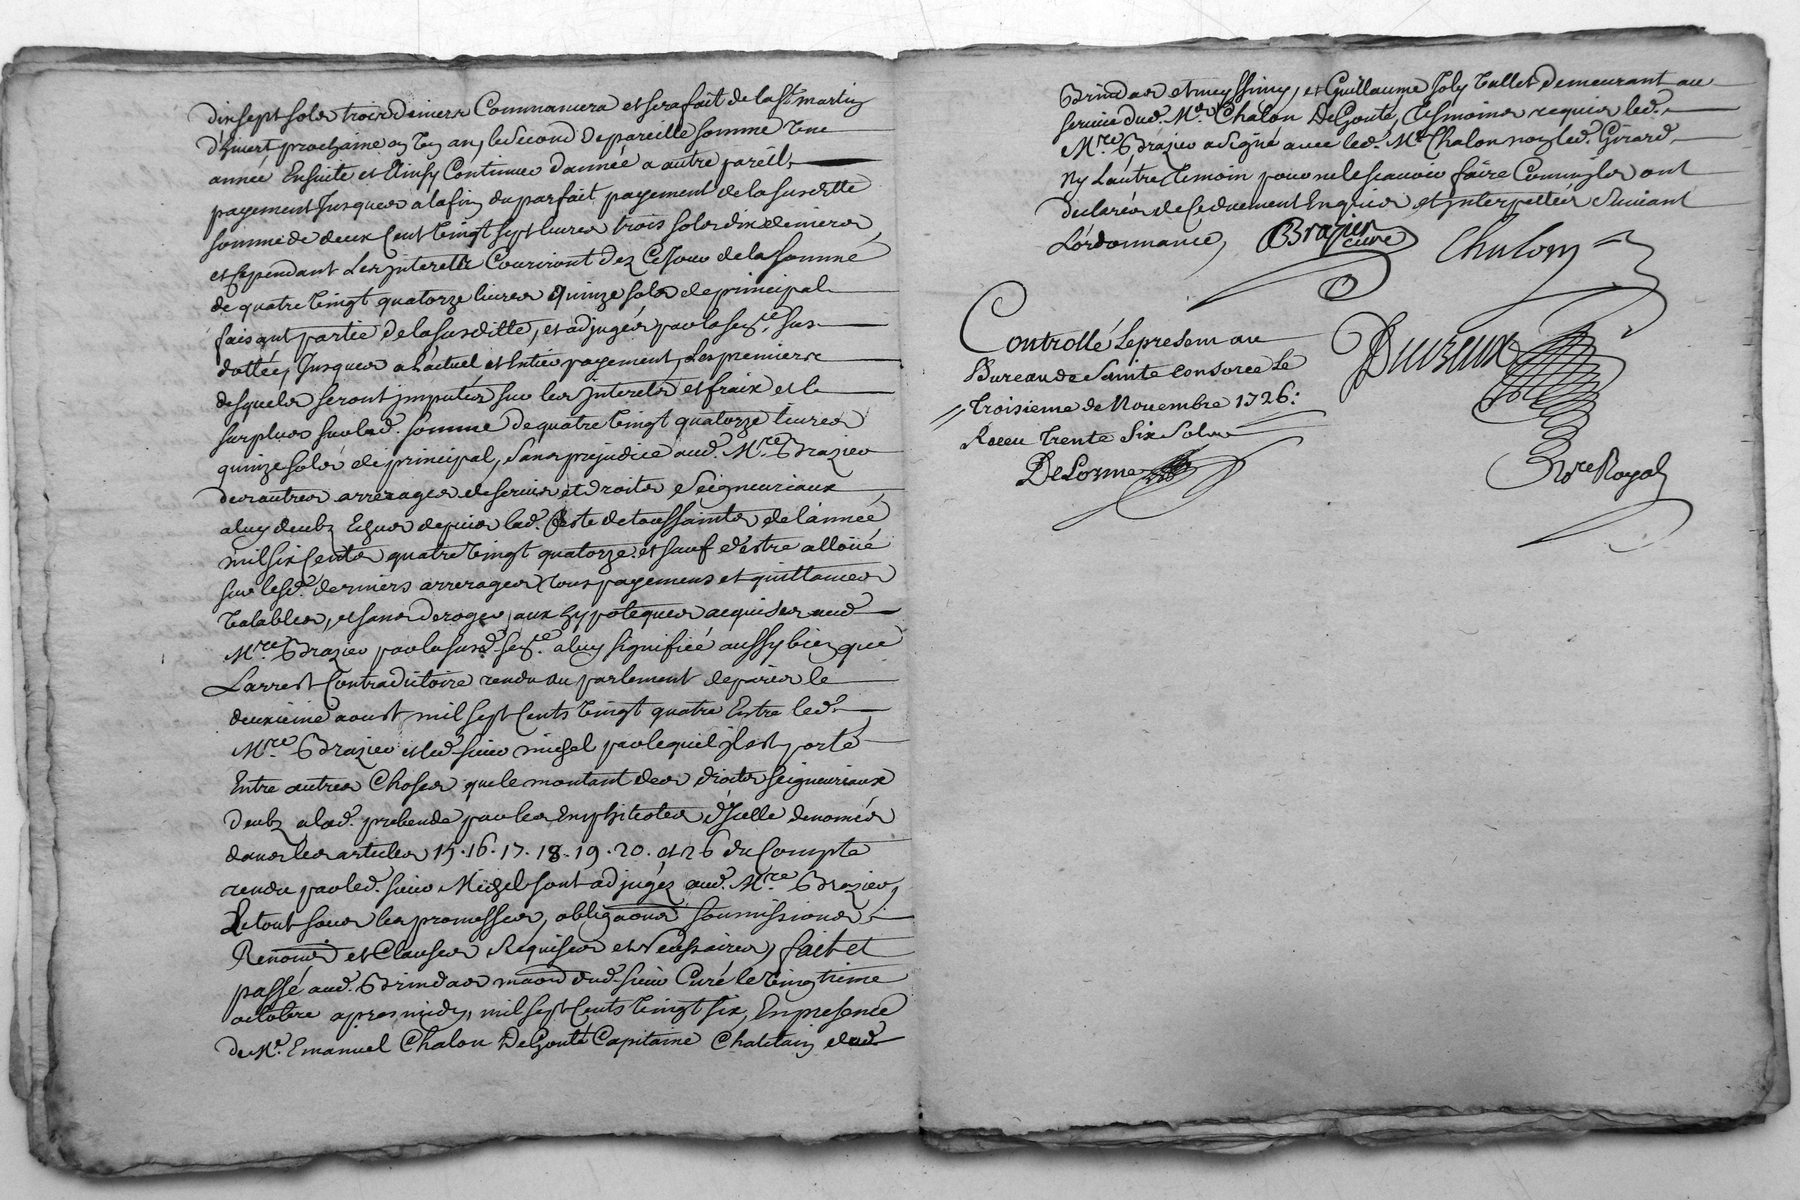 dix sept sols trois deniers Commancera et sera fait de la St martin
d'hivert prochaine en un an, le second de pareille somme une
année Ensuite et Ainsy Continuer d'année a autre pareil
payement Jusques a la fin du parfait payement de la susditte
somme de deux Cent vingt sept livres trois sols dix deniers,
et Cependant Les jnterets Couriront dez Ce Jour de la somme
de quatre vingt quatorze livres quinze sols de principal
faisant partie de la susditte, et adjugée par la sence. sus
dattée, Jusques a L'actuel et Entier payement, Les premiers
desquels seront jmputés sur les jnterets et fraix et le
surplus sur lad. somme de quatre vingt quatorze livres
quinze sols de principal, sans prejudice aud. Mre. Brazier
des autres arrerages de servis et droits Seigneuriaux
a luy deubz Echus depuis lad. feste de toussaints de l'année
mil six Cents quatre vingt quatorze. et sauf d'estre alloüé
sur lesd. derniers arrerages tous payemens et quittances
valables, et sans deroger, aux hypoteques acquises aud.
Mre. Brazier par la susd. sence. a luy signifiée aussy bien que
L'arrest Contradictoire rendu au parlement de paris le
deuxieme aoust mil sept Cents vingt quatre Entre led.
Mre. Brazier et led. sieur michel par lequel jl est porté
Entre autres Choses que le montant des droits seigneuriaux
deubz a lad. prebende par les Emphiteotes d'Icelle denomés
dans les articles 15. 16. 17. 18. 19. 20. et 26 du Compte
rendu par led. sieur Michel sont adjugéz aud. Mre. Brazier,
Le tout sous les promesses, obligaons soumissions
Renons. et Clauses Requises et Necessaires, fait et
passé aud. Brindas maon dud. sieur Curé le vingtieme
octobre apres midy, mil sept Cents vingt six, En presence
de Me. Emanuel Chalon DeGouté Capitaine Chatelain dud.
Brindas et messimy, et Guillaume Joly vallet demeurant au
service dud. Me. Chalon DeGouté, tesmoins requis led.
Mre. Brazier a signé avec led. Me Chalon non led. Girard
Ny L'autre temoin pour ne le scavoir faire Comm'ils ont
declarés de Ce duement Enquis et jnterpellés Suivant
L'ordonnance, Brazier curé Chalon
Controllé le present au
Bureau de Sainte Consorce Le
troisieme de Novembre 1726:
Receu trente Six Sols
DeLorme
Duvreux
Nore Royal